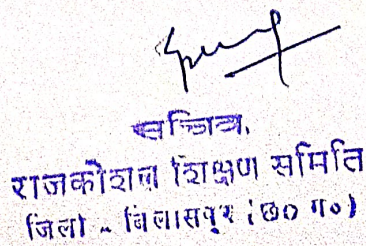 सचिव,
राजकोशल शिक्षण समिति
जिला - बिलासपुर (छ० ग०)